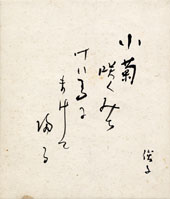 小菊
咲くみち
けいばに
まけて
帰る